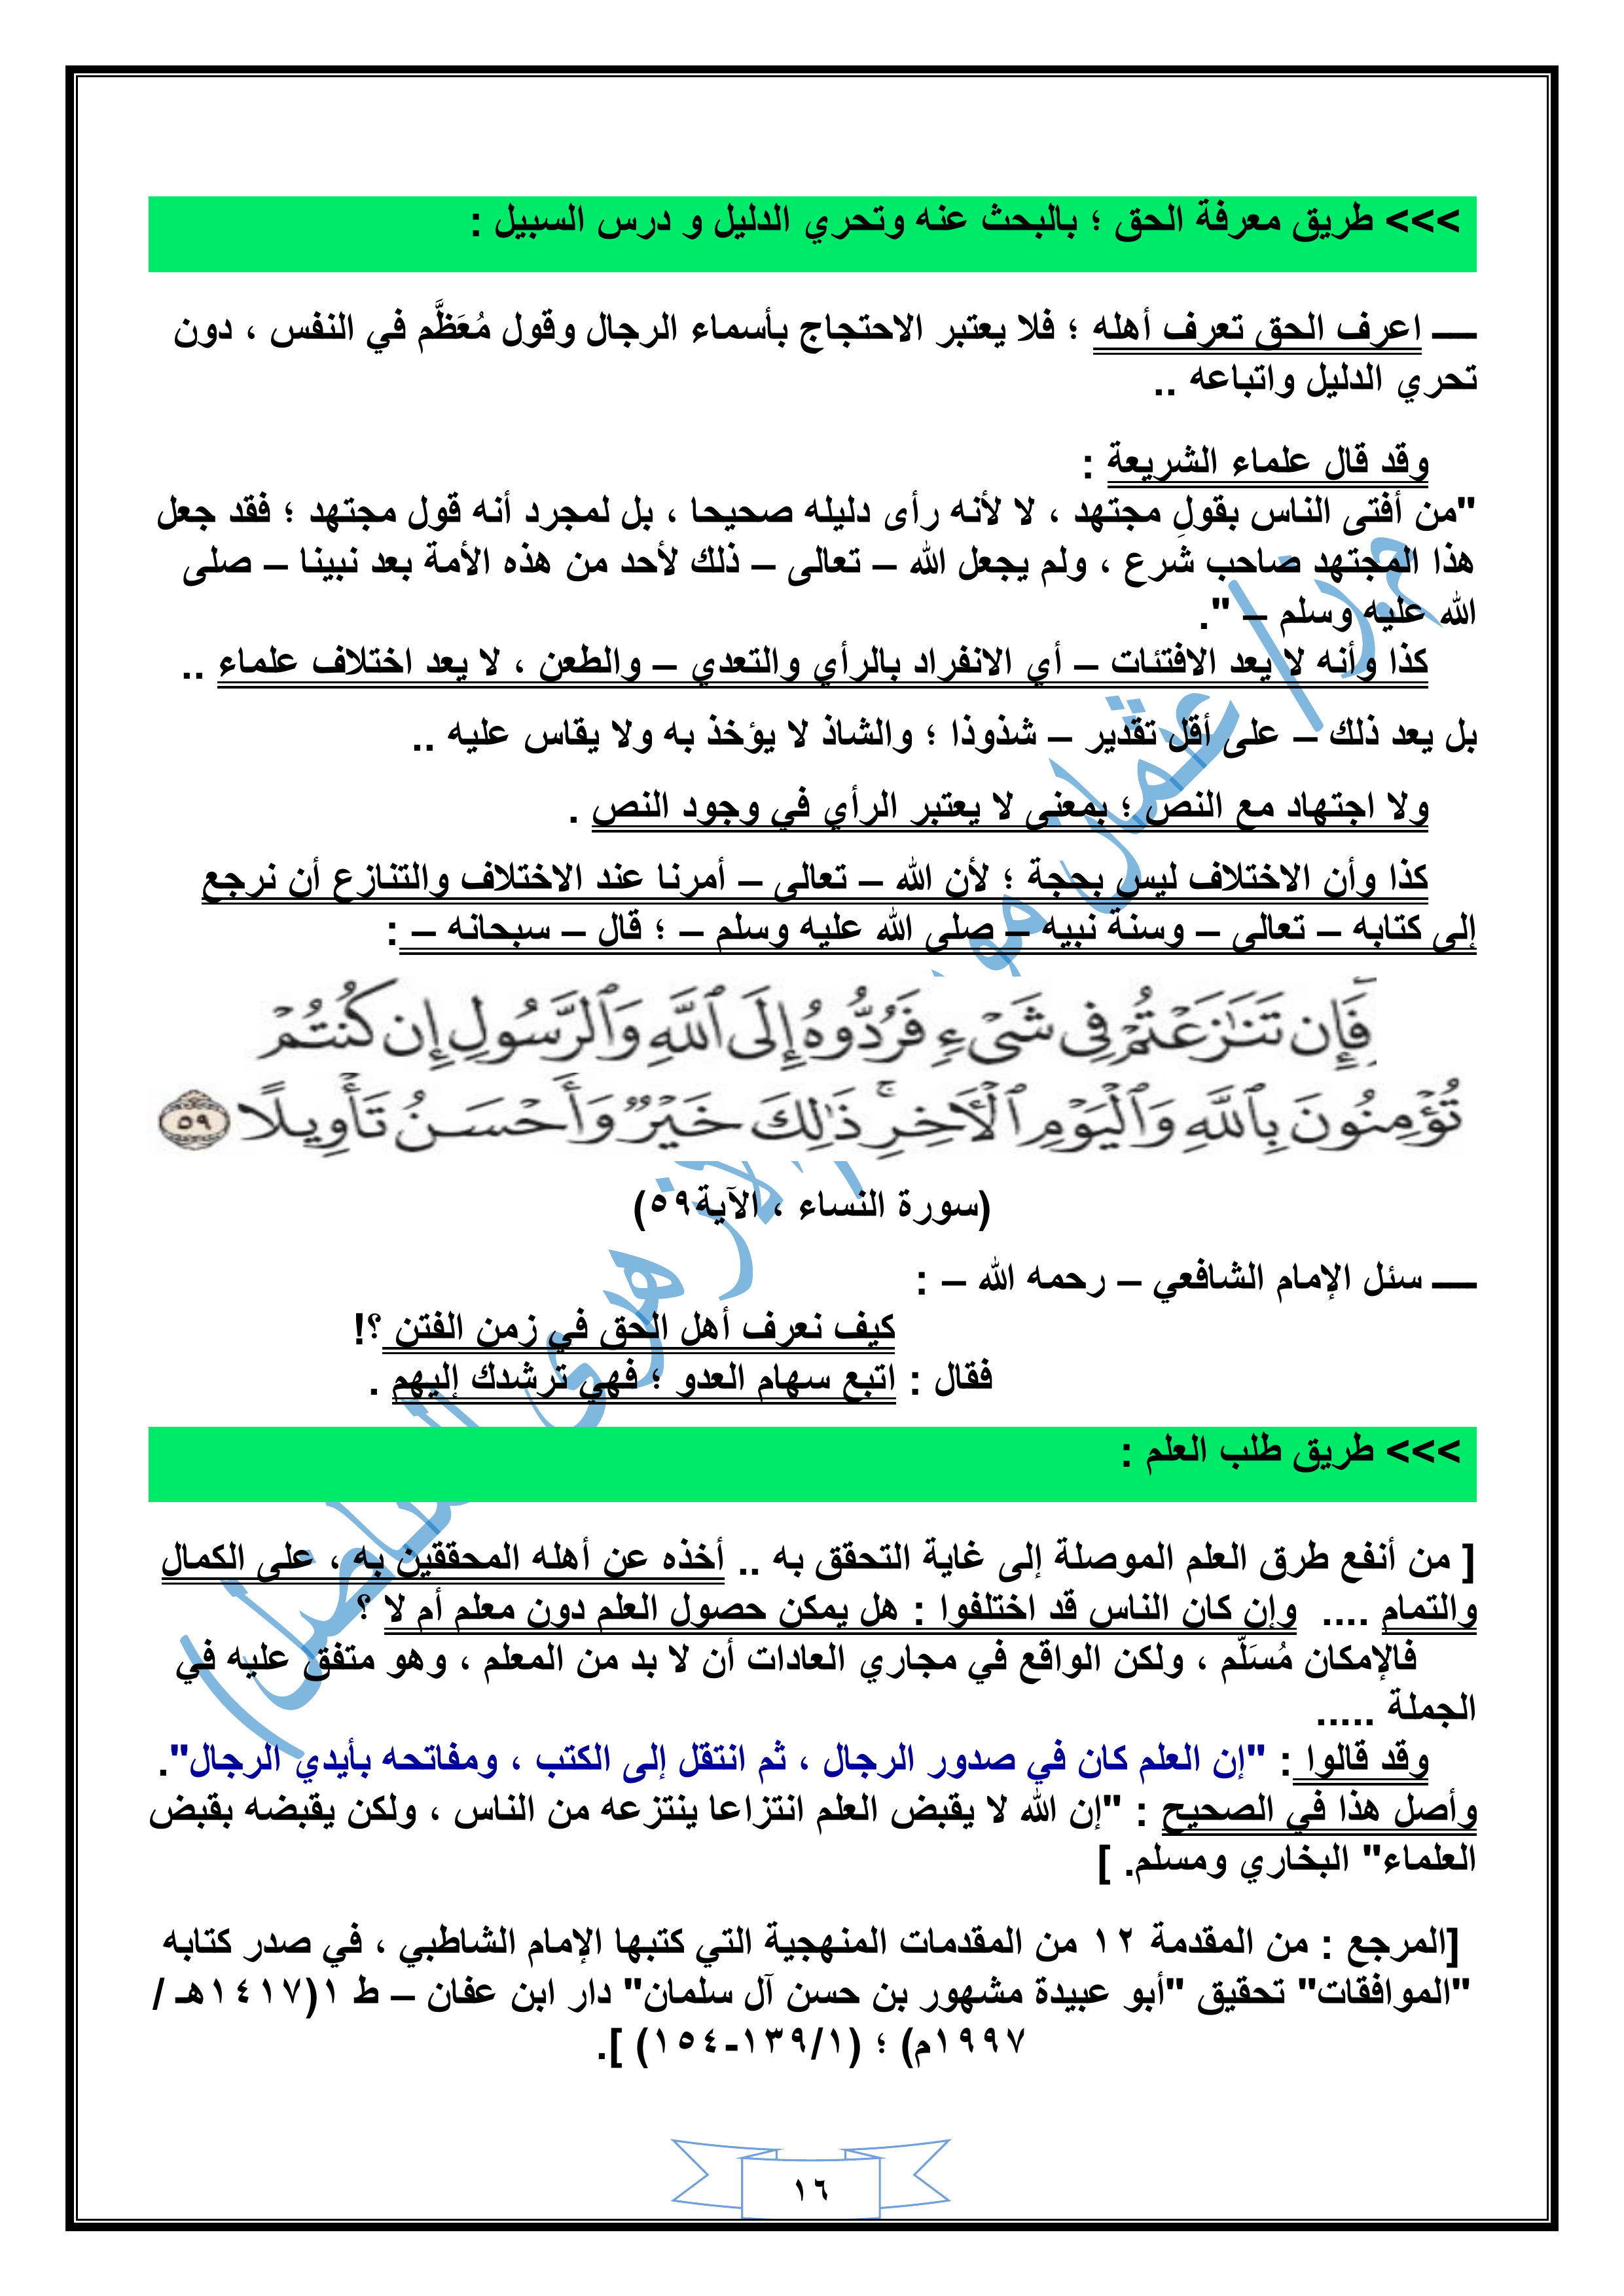 >>> طريق معرفة الحق ؛ بالبحث عنه وتحري الدليل و درس السبيل :
ــــ اعرف الحق تعرف أهله ؛ فلا يعتبر الاحتجاج بأسماء الرجال وقول مُعَظَّم في النفس ، دون
تحري الدليل واتباعه ..
وقد قال علماء الشريعة :
"من أفتى الناس بقولِ مجتهد ، لا لأنه رأى دليله صحيحا ، بل لمجرد أنه قول مجتهد ؛ فقد جعل
هذا المجتهد صاحب شرع ، ولم يجعل الله – تعالى – ذلك لأحد من هذه الأمة بعد نبينا – صلى
الله عليه وسلم – ".
كذا وأنه لا يعد الافتئات – أي الانفراد بالرأي والتعدي – والطعن ، لا يعد اختلاف علماء ..
بل يعد ذلك – على أقل تقدير – شذوذا ؛ والشاذ لا يؤخذ به ولا يقاس عليه ..
ولا اجتهاد مع النص ؛ بمعنى لا يعتبر الرأي في وجود النص .
كذا وأن الاختلاف ليس بحجة ؛ لأن الله – تعالى – أمرنا عند الاختلاف والتنازع أن نرجع
إلى كتابه – تعالى – وسنة نبيه – صلى الله عليه وسلم – ؛ قال – سبحانه – :
فَإِن تَنَٰزَعْتُمْ فِى شَىْءٍ فَرُدُّوهُ إِلَى ٱللَّهِ وَٱلرَّسُولِ إِن كُنتُمْ
تُؤْمِنُونَ بِٱللَّهِ وَٱلْيَوْمِ ٱلْأَخِرِ ۚ ذَٰلِكَ خَيْرٌ وَأَحْسَنُ تَأْوِيلًا ٥٩
(سورة النساء ، الآية٥٩)
ــــ سئل الإمام الشافعي – رحمه الله – :
كيف نعرف أهل الحق في زمن الفتن ؟!
فقال : اتبع سهام العدو ؛ فهي ترشدك إليهم .
>>> طريق طلب العلم :
[ من أنفع طرق العلم الموصلة إلى غاية التحقق به .. أخذه عن أهله المحققين به ، على الكمال
والتمام .... وإن كان الناس قد اختلفوا : هل يمكن حصول العلم دون معلم أم لا ؟
فالإمكان مُسَلَّم ، ولكن الواقع في مجاري العادات أن لا بد من المعلم ، وهو متفق عليه في
الجملة .....
وقد قالوا : "إن العلم كان في صدور الرجال ، ثم انتقل إلى الكتب ، ومفاتحه بأيدي الرجال".
وأصل هذا في الصحيح : "إن الله لا يقبض العلم انتزاعا ينتزعه من الناس ، ولكن يقبضه بقبض
العلماء" البخاري ومسلم. ]
[المرجع : من المقدمة ١٢ من المقدمات المنهجية التي كتبها الإمام الشاطبي ، في صدر كتابه
"الموافقات" تحقيق "أبو عبيدة مشهور بن حسن آل سلمان" دار ابن عفان – ط ١(١٤١٧هـ /
١٩٩٧م) ؛ (١/١٣٩-١٥٤) ].
١٦